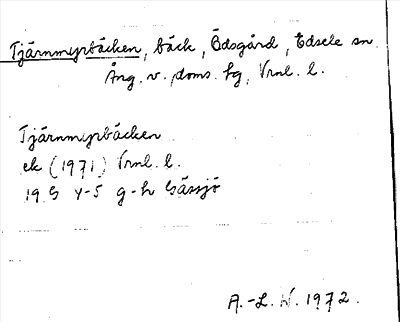 Tjärnmyrbäcken, bäck, Ödsgård, Edsele sn
Ång. v. doms. hg, Vrnl. l.
Tjärnmyrbäcken
ek (1971) Vrnl. l.
19 G Y-5 g-h Gässjö
A.-L. W. 1972.